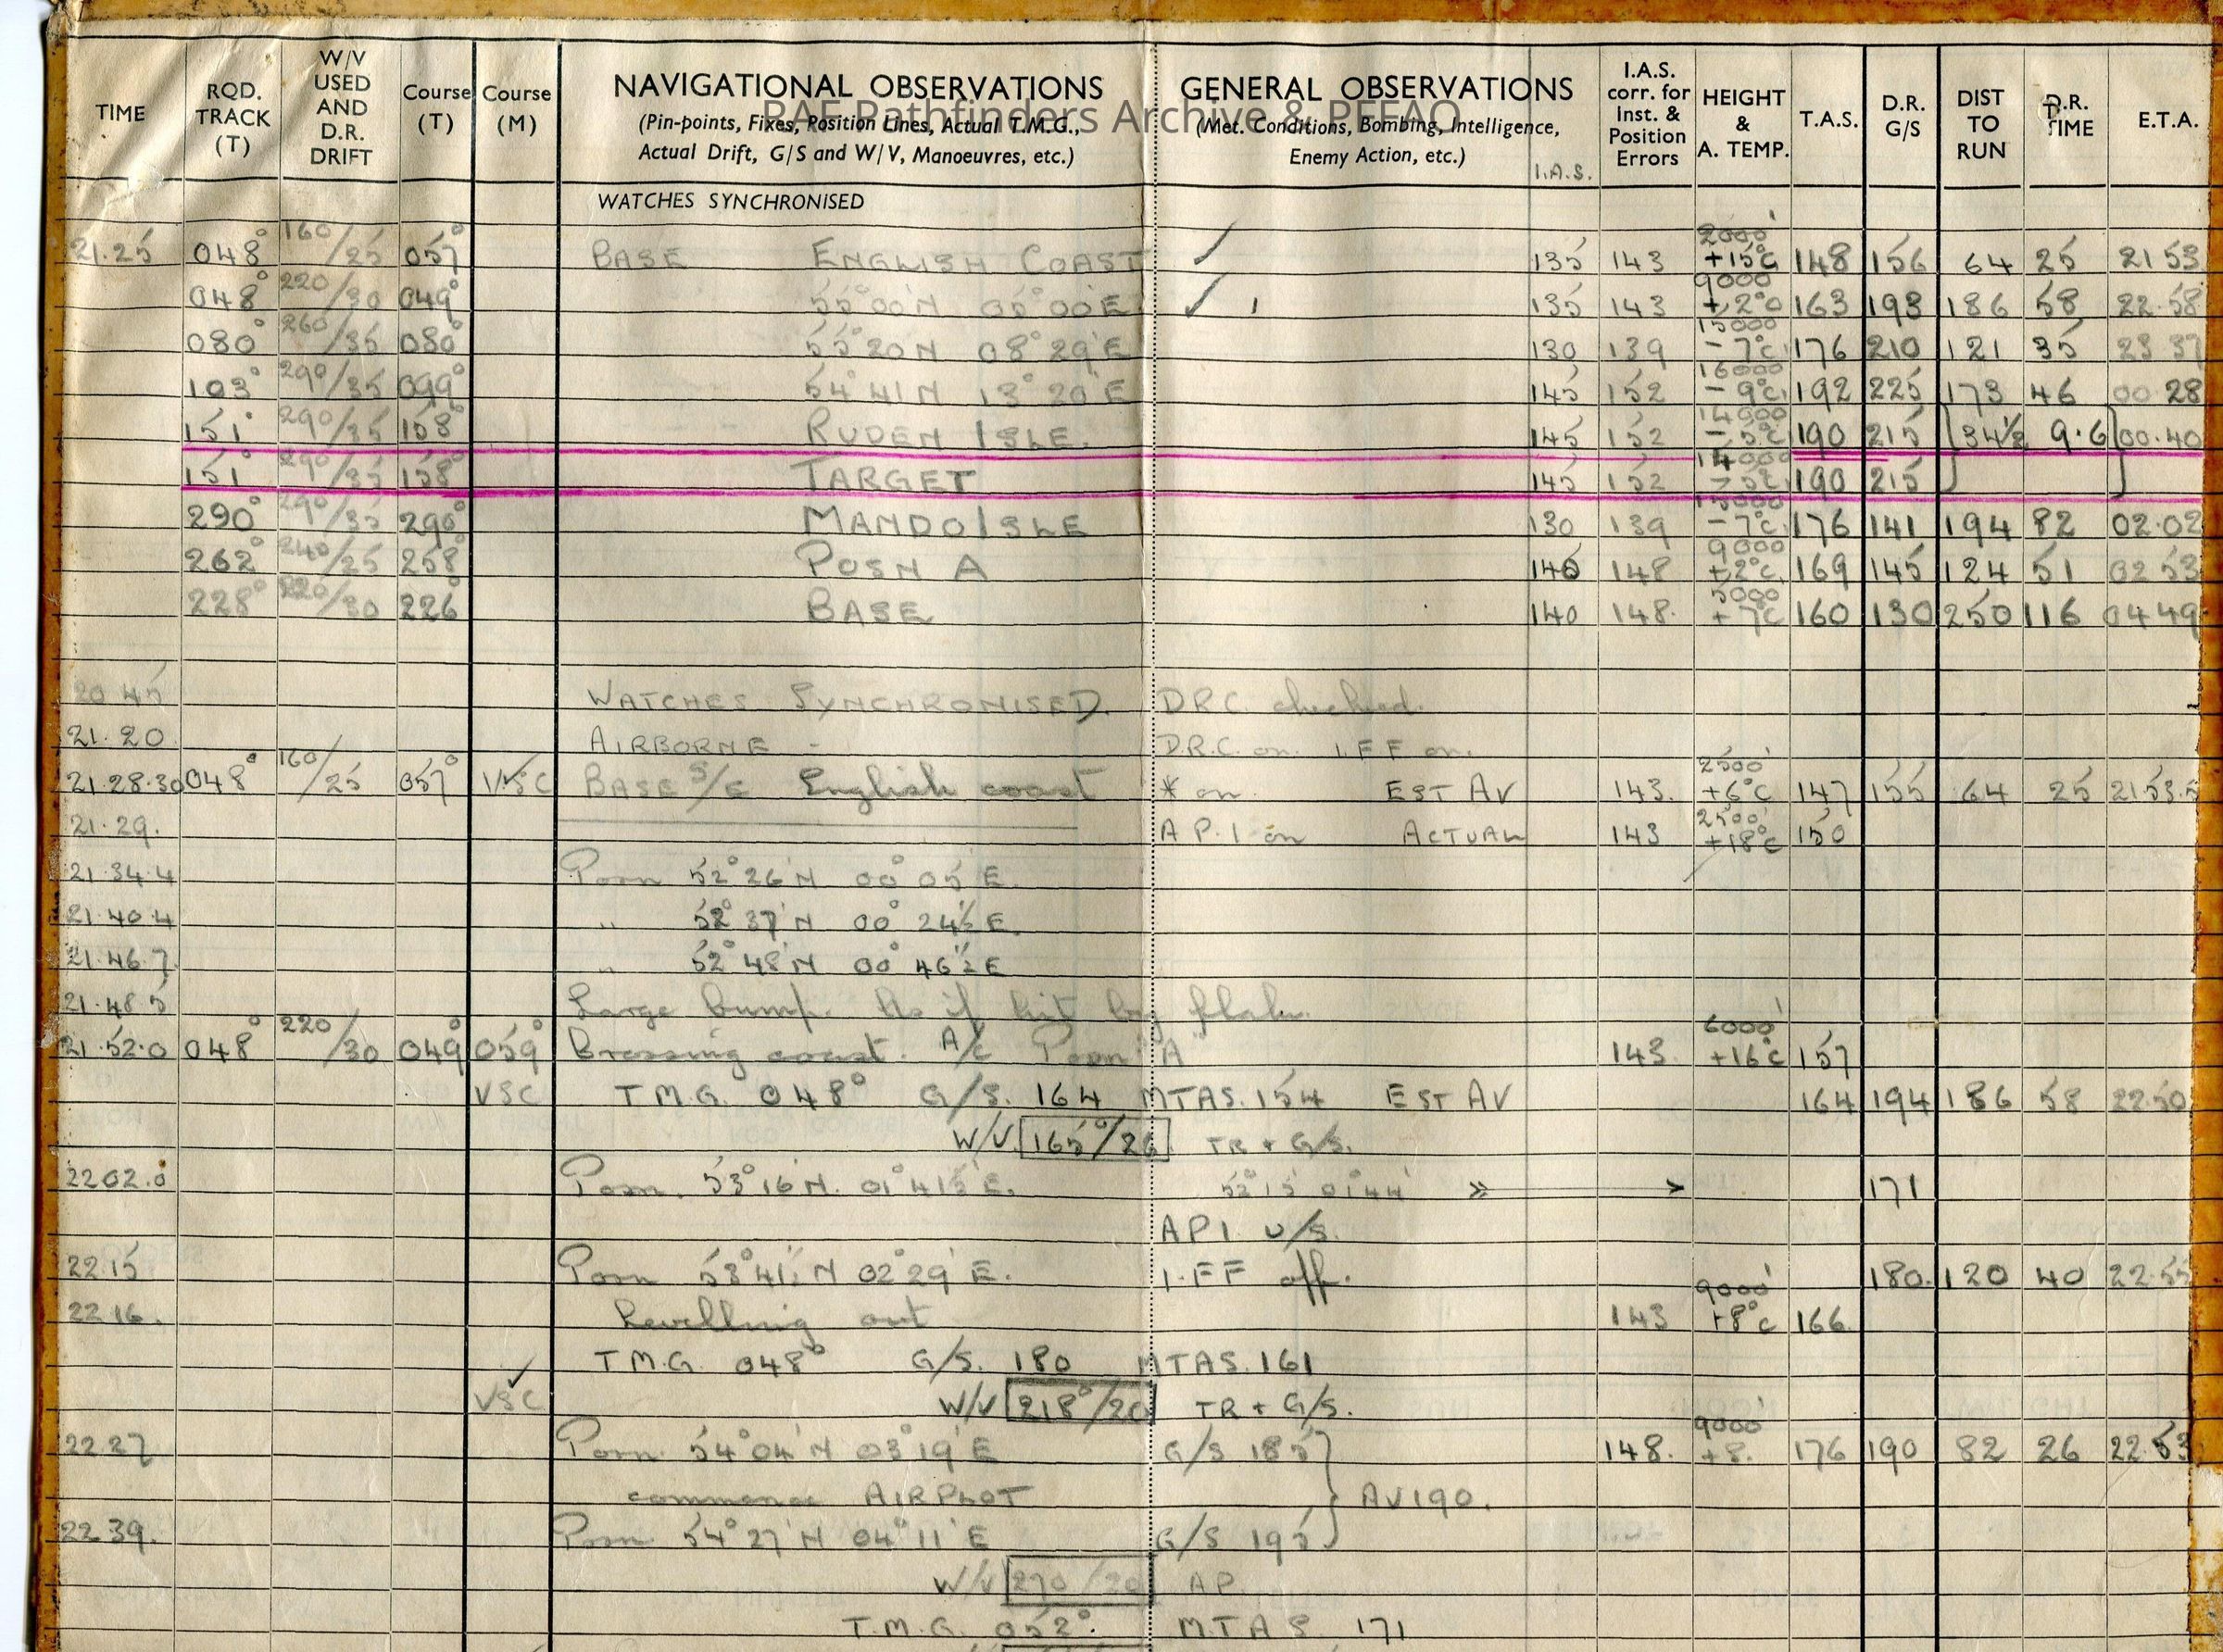 TIME RQD. TRACK (T) W/V USED AND D.R. DRIFT Course (T) Course (M) NAVIGATIONAL OBSERVATIONS (Pin-points, Fixes, Position Lines, Actual T.M.G., Actual Drift, G/S and W/V, Manoeuvres, etc.) GENERAL OBSERVATIONS (Met. Conditions, Bombing, Intelligence, Enemy Action, etc.) I.A.S. I.A.S. corr. for Inst. & Position Errors HEIGHT & A. TEMP. T.A.S. D.R. G/S DIST TO RUN D.R. TIME E.T.A.
RAF Pathfinders Archive & PFFAO
WATCHES SYNCHRONISED
21.25 048° 160/25 057° BASE ENGLISH COAST ✓ 135 143 2000' +15°C 148 156 64 25 21 53
048° 220/30 049° 55°00'N 05°00'E ✓ 135 143 9000 +2°C 163 193 186 58 22.58
080° 260/35 080° 55°20N 08°29'E 130 139 15000 -7°C 176 210 121 35 23 37
103° 290/35 099° 54°41N 13°20'E 145 152 16000 -9°C 192 225 173 46 00 28
151° 290/35 158° RUDEN ISLE. 145 152 14000 -5°C 190 215 34½ 9.6 00.40
151° 290/35 158° TARGET 145 152 14000 -5°C 190 215
290° 290/35 290° MANDO ISLE 130 139 15000 -7°C 176 141 194 82 02.02
262° 240/25 258° POSN A 140 148 9000 +2°C 169 145 124 51 02 53
228° 220/30 226° BASE 140 148. 5000 +7°C 160 130 250 116 04 49
20 45 WATCHES SYNCHRONISED. D.R.C. checked.
21.20. AIRBORNE - D.R.C. on. I.F.F on.
21.28.30 048° 160/25 057° VSC BASE S/C English coast * on. EST AV 143. 2500' +6°C 147 155 64 25 21 53.5
21.29. A.P.I on ACTUAL 143 2500' +18°C 150
21.34.4 Posn 52°26'N 00°05'E.
21.40.4 " 52°37'N 00°24½'E.
21.46.7. " 52°48'N 00°46½'E
21.48.5 Large bump. As if hit by flak.
21.52.0 048° 220/30 049° 059° Crossing coast. A/C Posn "A" 143. 6000' +16°C 157
VSC T.M.G. 048° G/S. 164 MTAS. 154 EST AV 164 194 186 58 22.50
W/V 165°/26 TR + G/S.
2202.0 Posn. 53°16'N. 01°41½'E. 01°44' » > 171
API u/s.
22.15 Posn 53°41½'N 02°29'E. I.FF off. 180. 120 40 22.55
22 16. Levelling out 143 9000' +8°C 166.
T.M.G. 048° G/S. 180 MTAS. 161
VSC ✓ W/V 218°/20 TR + G/S.
22.27 Posn. 54°04'N 03°19'E G/S 185 148. 9000' +8. 176 190 82 26 22.53
commence AIRPLOT AV 190.
22 39. Posn 54°27'N 04°11'E G/S 195
W/V 270/20 AP
T.M.G. 052°. M.T.A.S. 171